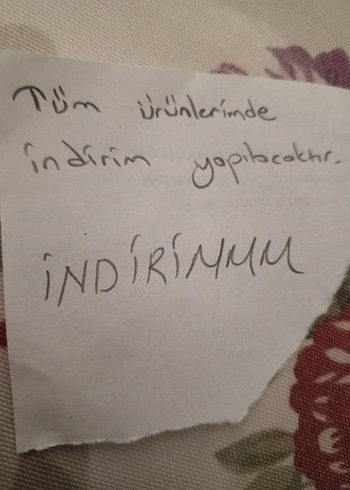 Tüm ürünlerimde
indirim yapılacaktır.
İNDİRİMMM